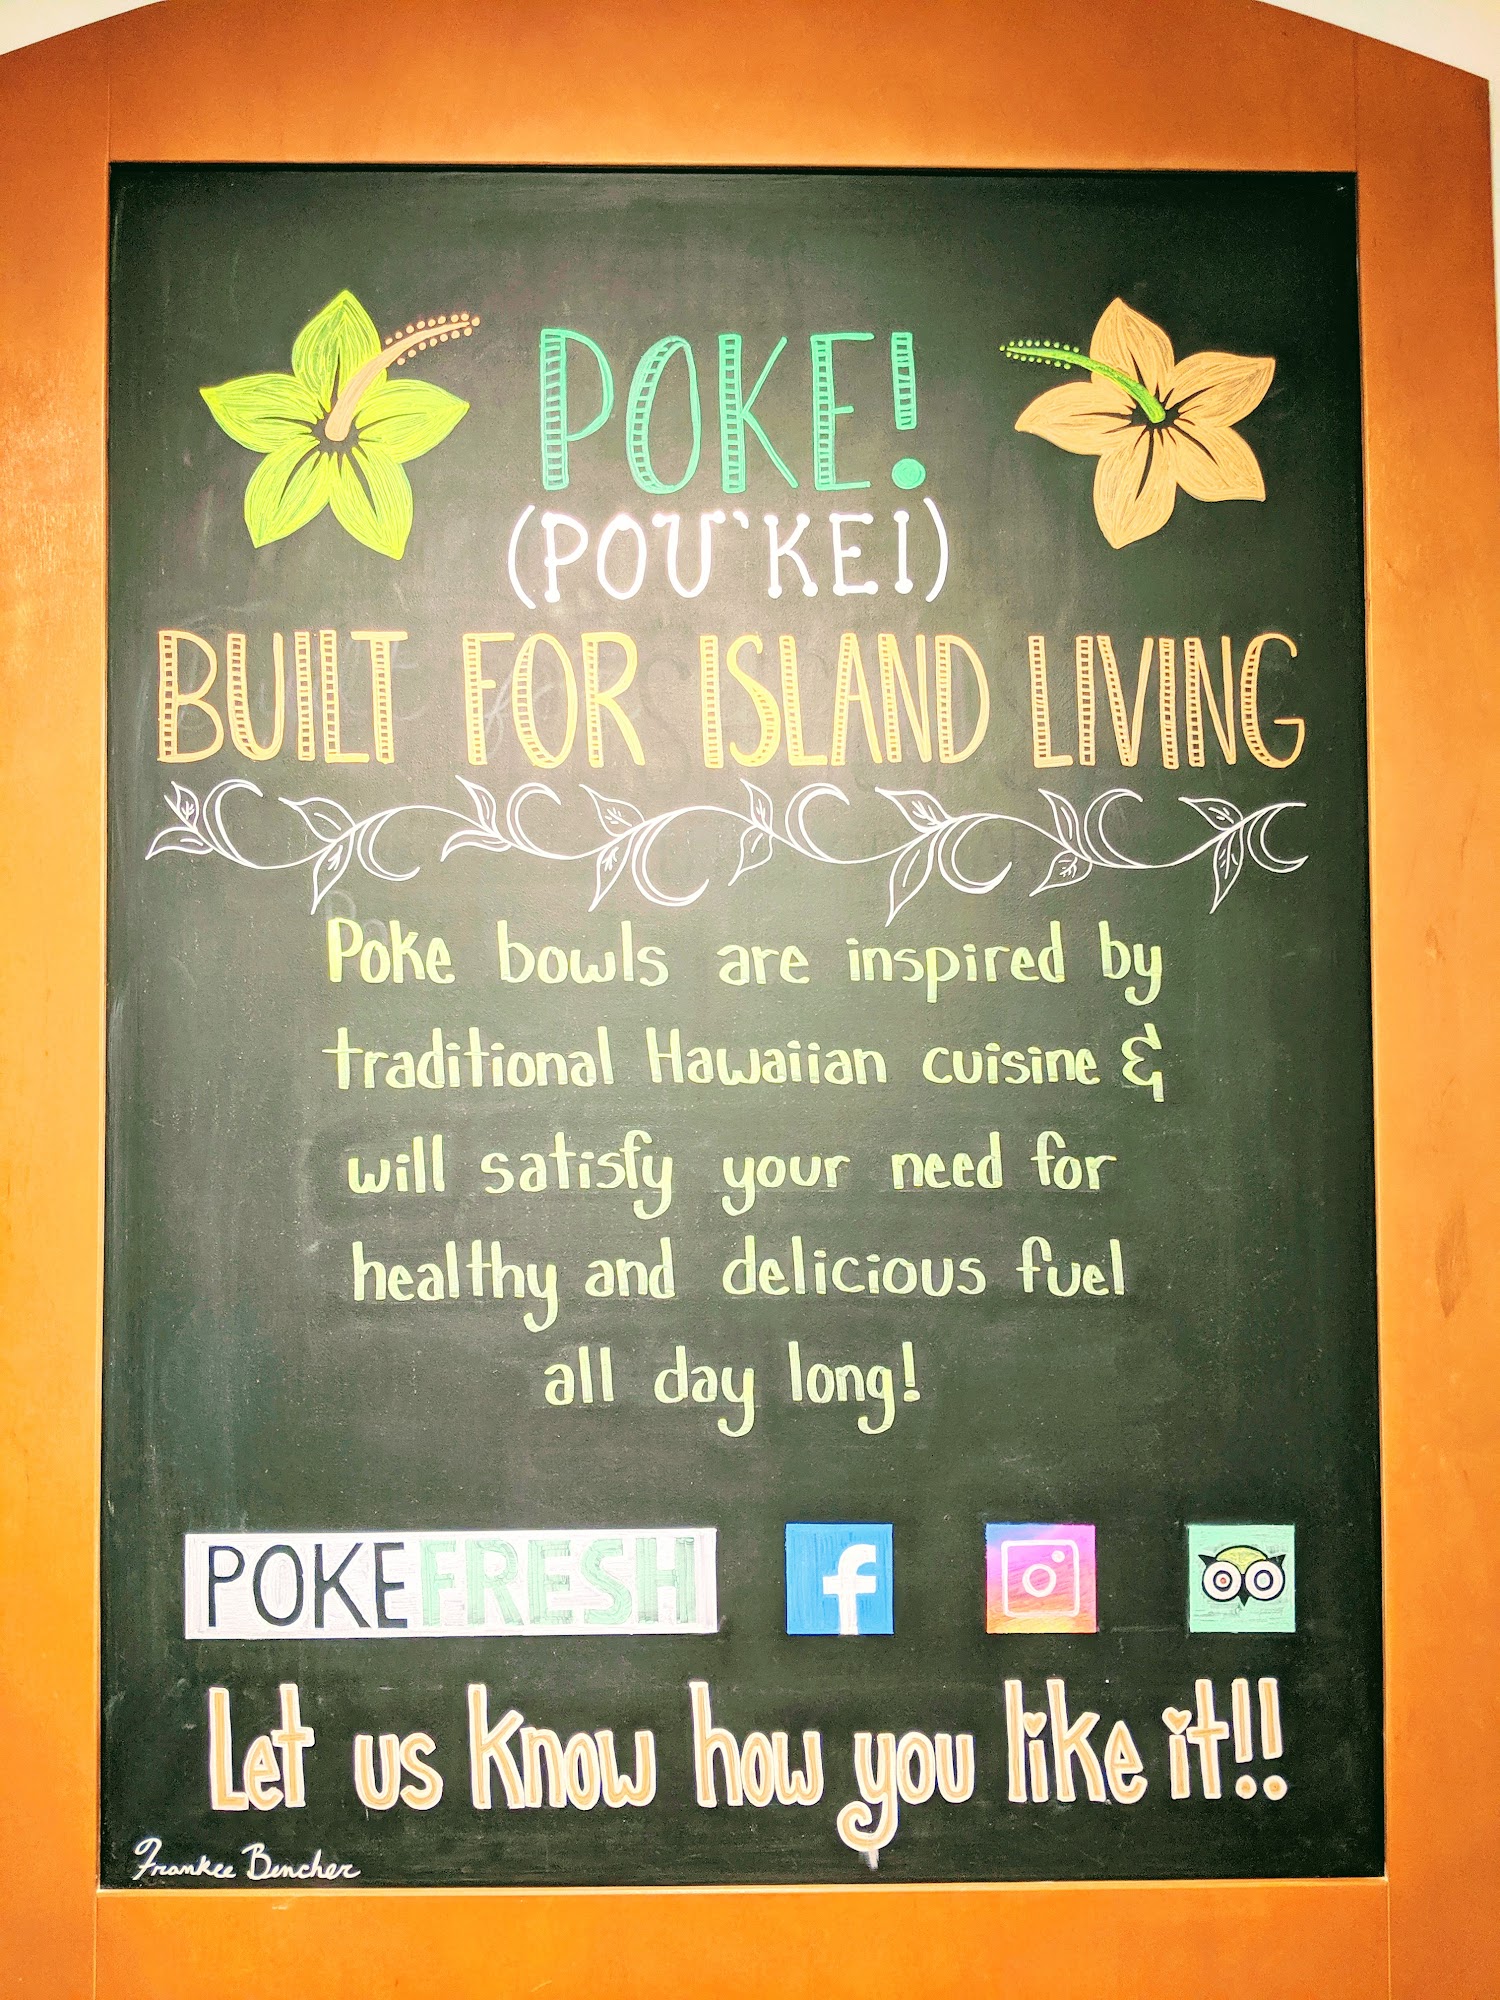 POKE!
(POU`KEI)
BUILT FOR ISLAND LIVING
Poke bowls are inspired by
traditional Hawaiian cuisine &
will satisfy your need for
healthy and delicious fuel
all day long!
POKEFRESH f
Let us know how you like it!!
Frankee Bencher